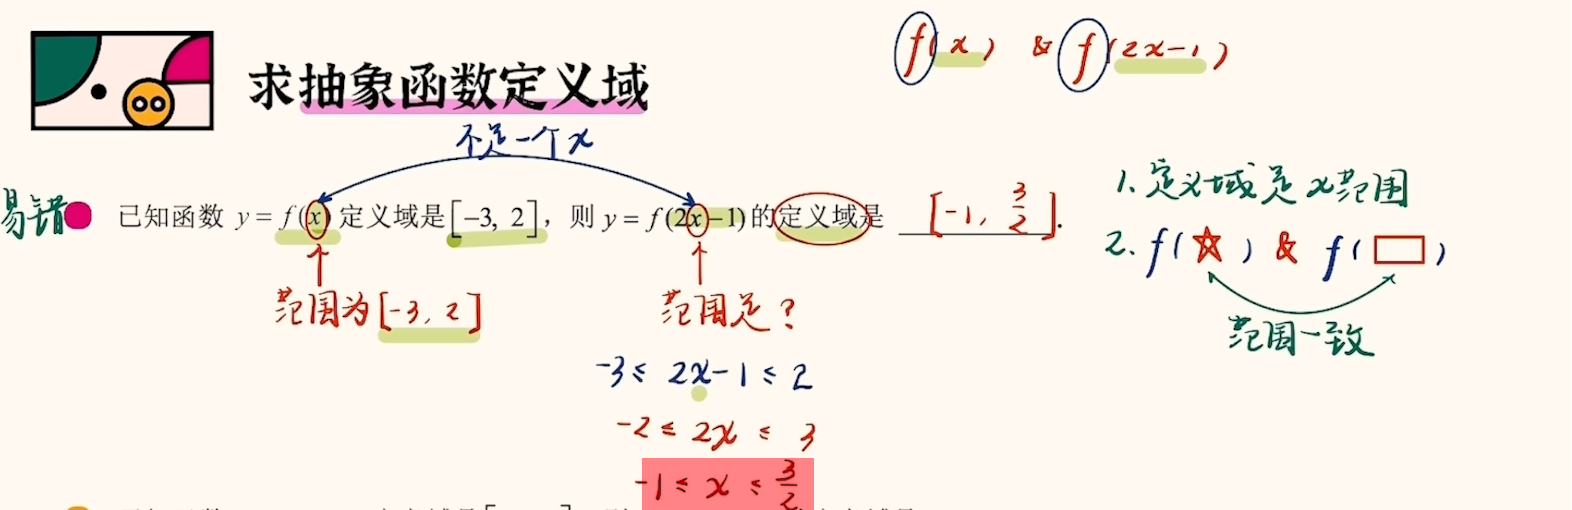 f(x) & f(2x-1)
求抽象函数定义域
不是一个x
易错
已知函数 y = f(x) 定义域是[-3, 2], 则 y = f(2x-1)的定义域是 [-1, 3/2].
范围为[-3, 2]
范围是?
-3 ≤ 2x-1 ≤ 2
-2 ≤ 2x ≤ 3
-1 ≤ x ≤ 3/2
1. 定义域是x范围
2. f(☆) & f(▭)
范围一致